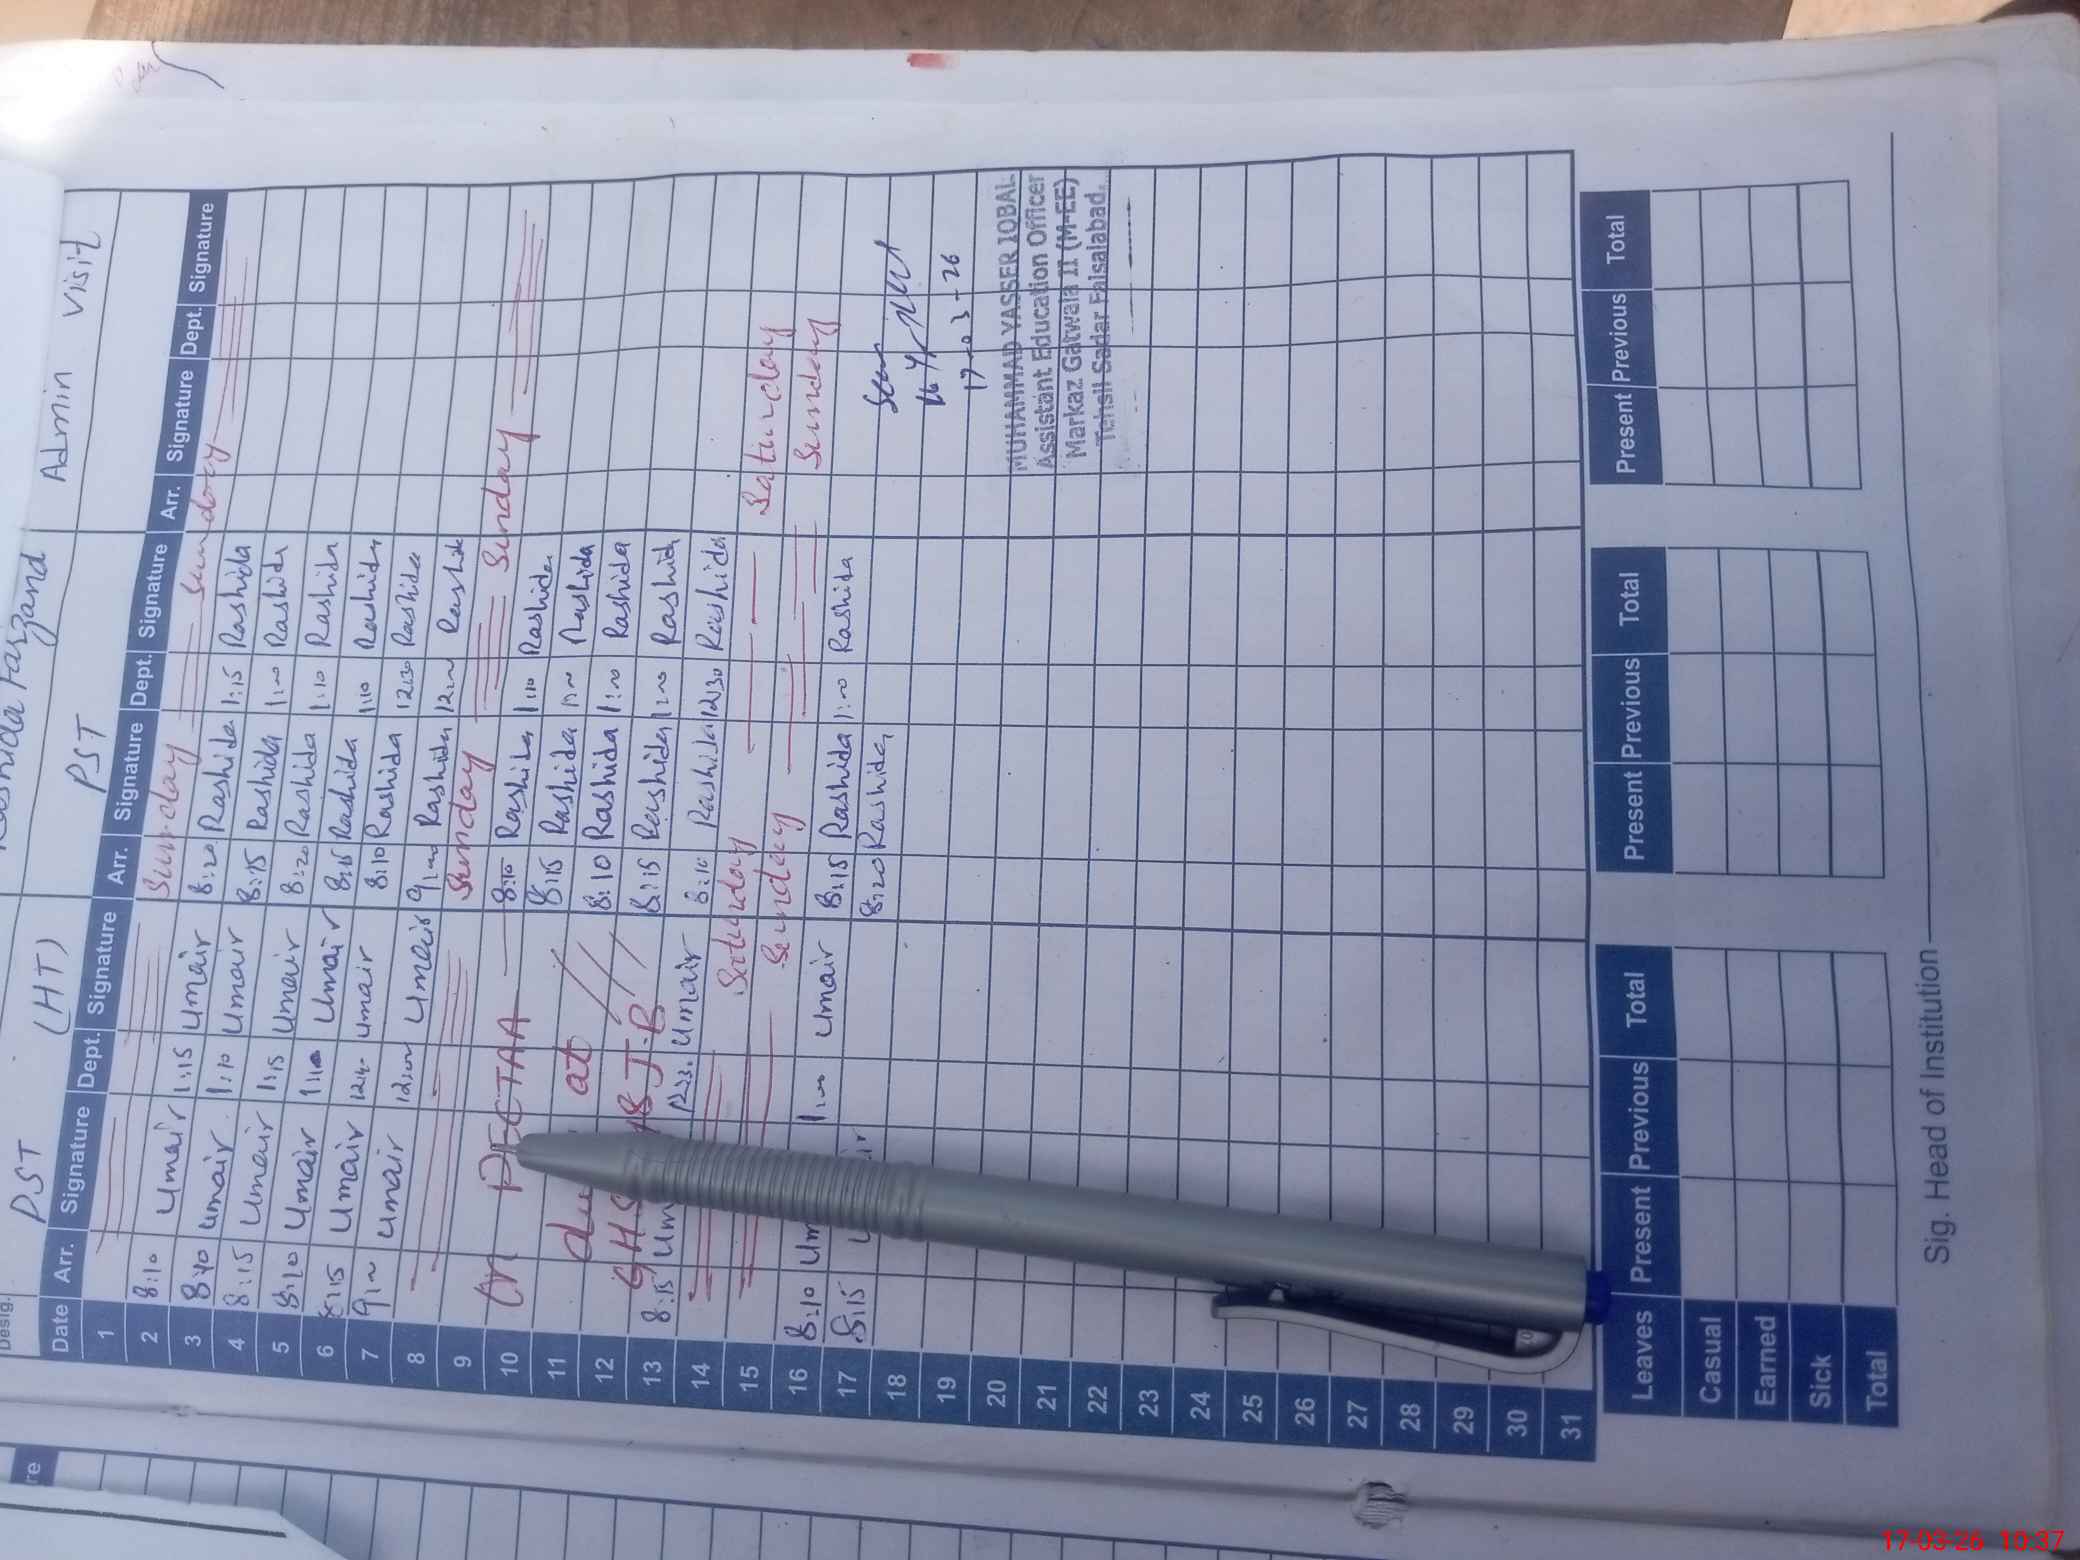 Rashida Farzand
Desig. PST (HT) PST Admin Visit
Date Arr. Signature Dept. Signature Arr. Signature Dept. Signature Arr. Signature Dept. Signature
1 Sunday Sunday
2 8:10 Umair 1:15 Umair 8:20 Rashida 1:15 Rashida
3 8:10 Umair 1:10 Umair 8:15 Rashida 1:00 Rashida
4 8:15 Umair 1:15 Umair 8:20 Rashida 1:10 Rashida
5 8:10 Umair 1:10 Umair 8:15 Rashida 1:10 Rashida
6 8:15 Umair Umair 8:10 Rashida 12:30 Rashida
7 9:00 Umair 12:00 Umair 9:00 Rashida 12:00 Rashida
8 Sunday Sunday
9 8:10 Rashida 1:10 Rashida
10 On PECTAA 8:15 Rashida 1:00 Rashida
11 at 8:10 Rashida 1:00 Rashida
12 J.B 8:15 Rashida 1:00 Rashida
13 8:15 12:30 Umair 8:10 Rashida 12:30 Rashida
14 Saturday Saturday
15 Sunday Sunday
16 8:10 1:00 Umair 8:15 Rashida 1:00 Rashida
17 8:15 8:20 Rashida
18
19 17-03-26
20 MUHAMMAD YASSER IQBAL
21 Assistant Education Officer
Markaz Gatwala II (M-EE)
22 Tehsil Sadar Faisalabad.
23
24
25
26
27
28
29
30
31
Leaves Present Previous Total Present Previous Total Present Previous Total
Casual
Earned
Sick
Total
Sig. Head of Institution
17-03-26 10:37